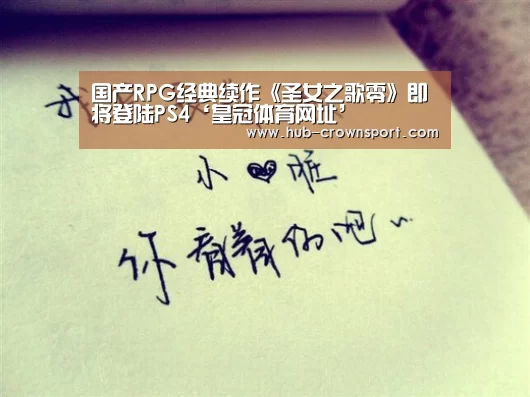 国产RPG经典续作《圣女之歌零》即
将登陆PS4‘皇冠体育网址’
www.hub-crownsport.com
小 脏
你看着办吧